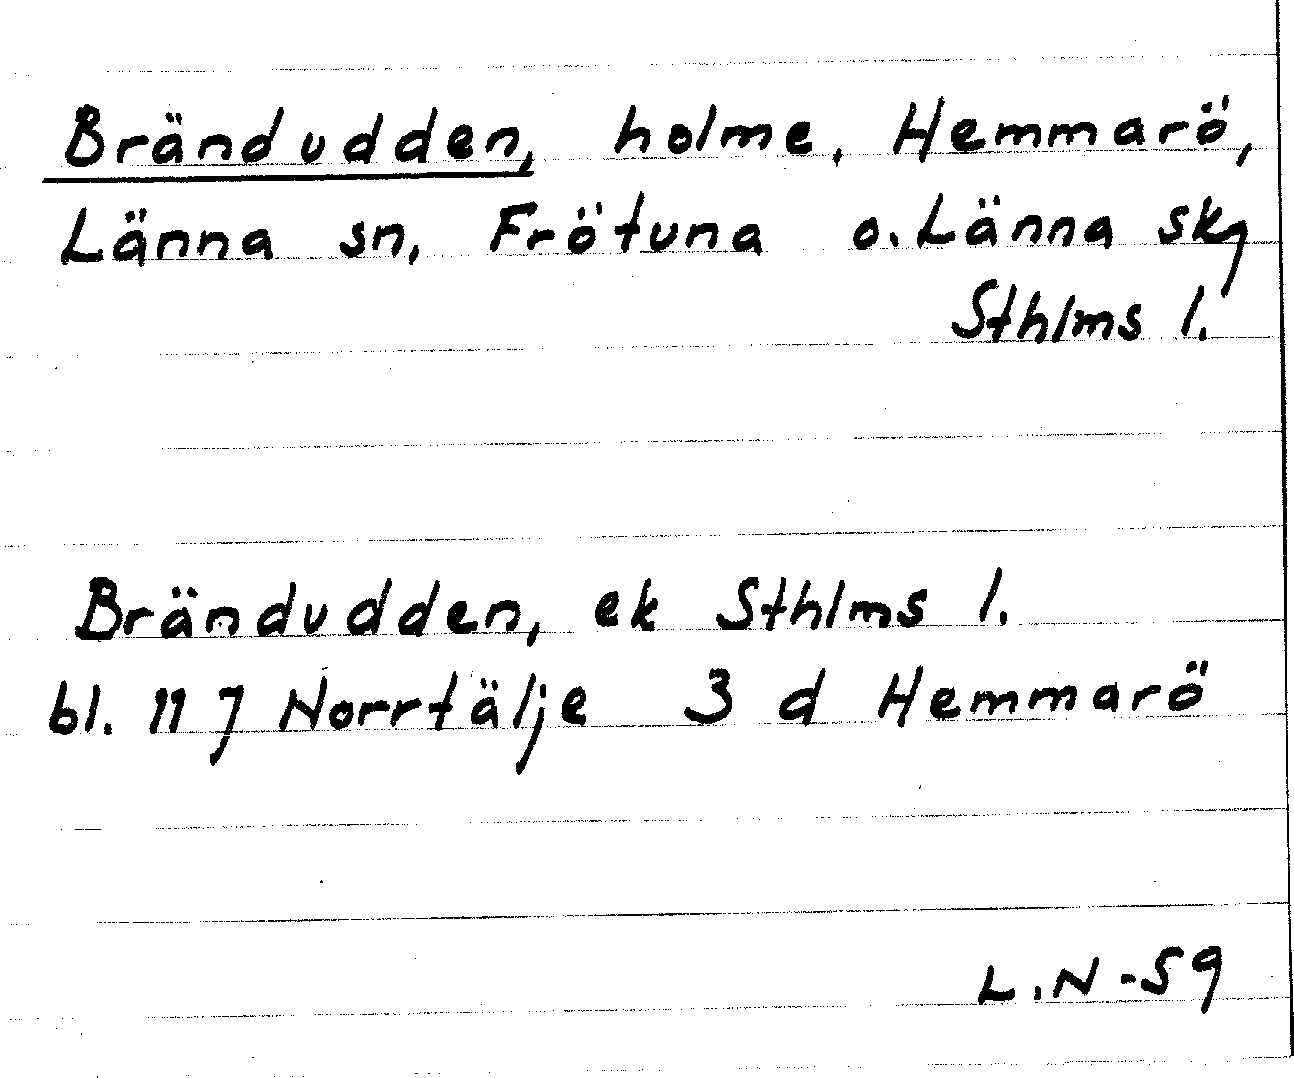 Brändudden, holme, Hemmarö,
Länna sn, Frötuna o. Länna skg
Sthlms l.
Brändudden, ek Sthlms l.
bl. 117 Norrtälje 3 d Hemmarö
L.N -59